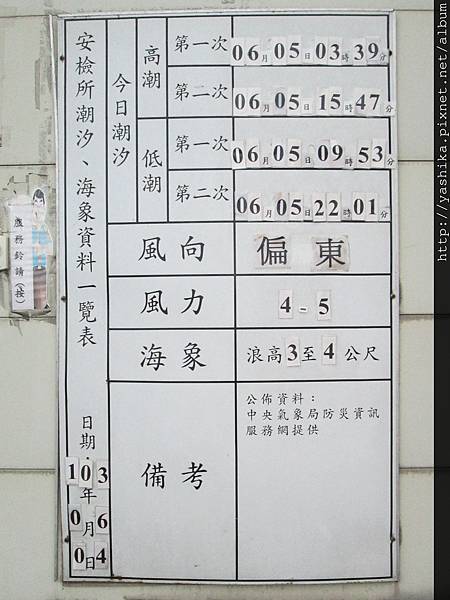 安檢所潮汐、海象資料一覽表
日期:103年06月04日
今日潮汐
高潮
第一次
06月05日03時39分
第二次
06月05日15時47分
低潮
第一次
06月05日09時53分
第二次
06月05日22時01分
風向
偏東
風力
4-5
海象
浪高3至4公尺
備考
公佈資料：
中央氣象局防災資訊
服務網提供
服務鈴請(按)
http://yashika.pixnet.net/album